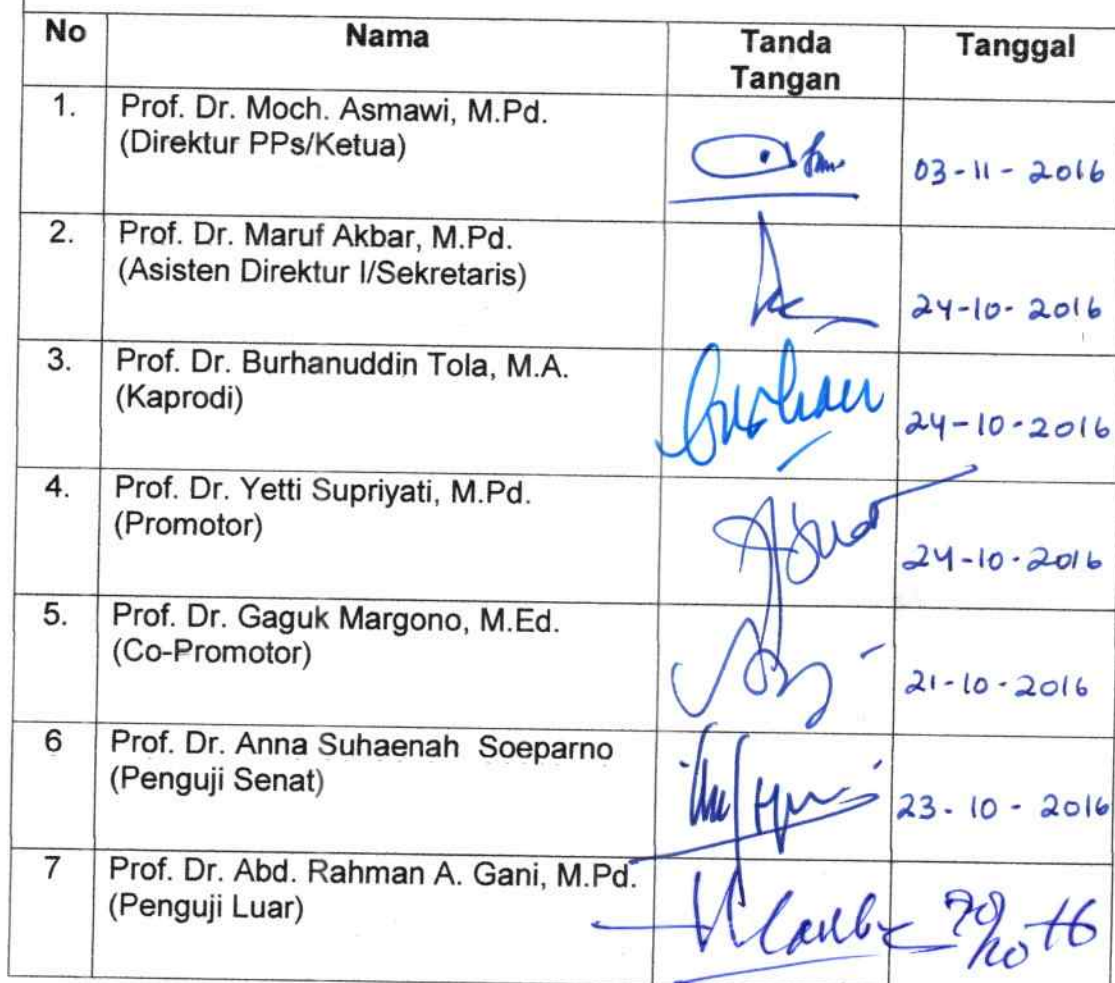 No Nama Tanda Tangan Tanggal
1. Prof. Dr. Moch. Asmawi, M.Pd.
(Direktur PPs/Ketua)
03-11-2016
2. Prof. Dr. Maruf Akbar, M.Pd.
(Asisten Direktur I/Sekretaris)
24-10-2016
3. Prof. Dr. Burhanuddin Tola, M.A.
(Kaprodi)
24-10-2016
4. Prof. Dr. Yetti Supriyati, M.Pd.
(Promotor)
24-10-2016
5. Prof. Dr. Gaguk Margono, M.Ed.
(Co-Promotor)
21-10-2016
6 Prof. Dr. Anna Suhaenah Soeparno
(Penguji Senat)
23-10-2016
7 Prof. Dr. Abd. Rahman A. Gani, M.Pd.
(Penguji Luar)